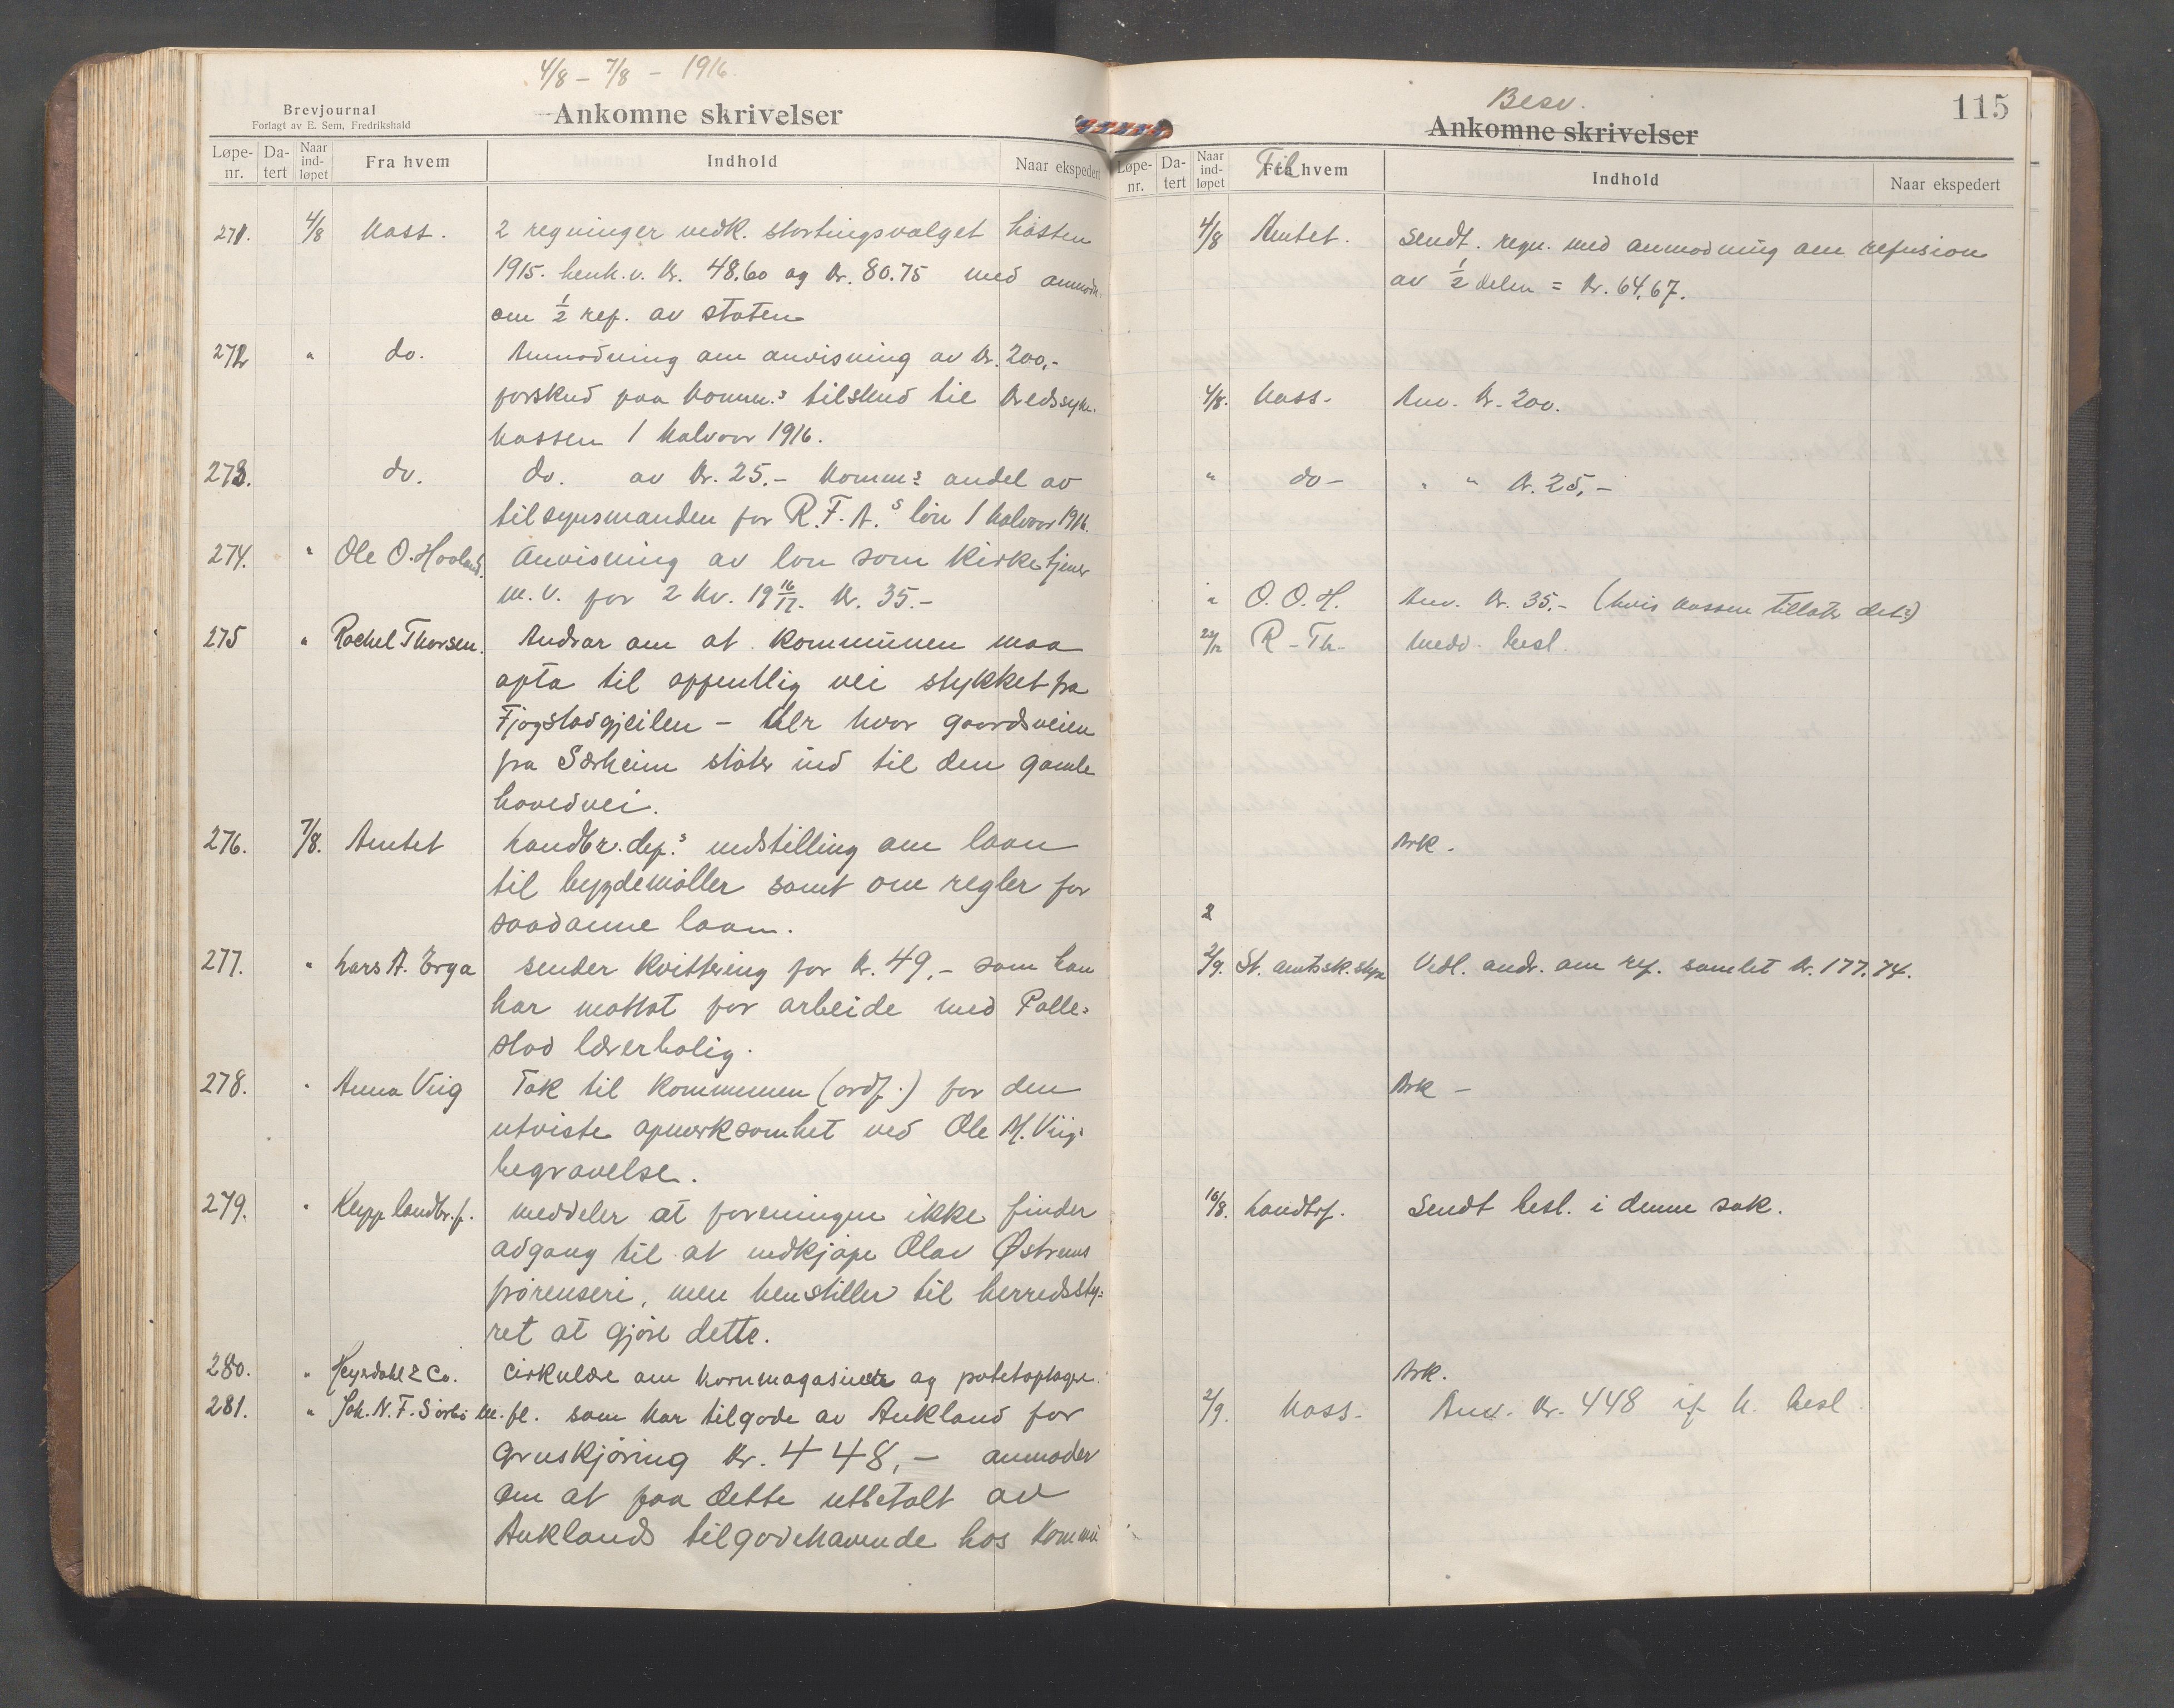 4/8 – 7/8 – 1916.
Brevjournal
Forlagt av E. Sem, Fredrikshald
Ankomne skrivelser
Løpe-nr. Da-tert Naar ind-løpet Fra hvem Indhold Naar ekspedert
271. 4/8 Kass. 2 regninger vedk. stortingsvalget høsten
1915. henh.v. Kr. 48.60 og Kr. 80.75 med anmodn.
om 1/2 ref. av staten
272 " do. Anmodning om anvisning av Kr. 200,-
forskud paa komm.s tilskud til Kredssyke-
kassen 1 halvaar 1916.
273. do. do. av Kr. 25.- Komm.s andel av
tilsynsmanden for R.F.A.s løn 1 halvaar 1916.
274. " Ole O. Hovland. Anvisning av løn som Kirketjener
m.v. for 2 kv. 1916/17. Kr. 35.-
275 " Rachel Thorsen. Andrar om at kommunen maa
opta til offentlig vei stykket fra
Fjogstadgjeilen – der hvor gaardsveien
fra Særheim støter ind til den gamle
hovedvei.
276. 7/8. Amtet Landbr.dep.s indstilling om laan
til bygdemøller samt om regler for
saadanne laan.
277. " Lars A. Erga sender kvittering for Kr. 49,- som han
har mottat for arbeide med Palle=
stad lærerbolig.
278. " Anna Viig Tak til kommunen (ordf.) for den
utviste opmerksomhet ved Ole M. Viigs
begravelse.
279. " Klepp landbr.f. meddeler at foreningen ikke finder
adgang til at indkjøpe Olav Østrems
frørenseri, men henstiller til herredssty=
ret at gjøre dette.
280. " Heyerdahl & Co. Cirkulære om kornmagasiner og potetoptagere.
281. " Joh. N. F. Sørbø m.fl. som har tilgode av Aukland for
gruskjøring Kr. 448,– anmoder
om at faa dette utbetalt av
Auklands tilgodehavende hos kommu
115
Besv.
Ankomne skrivelser
Løpe-nr. Da-tert Naar ind-løpet Fra hvem Til Indhold Naar ekspedert
4/8 Amtet. Sendt. regn. med anmodning om refusion
av 1/2 delen = Kr. 64,67.
4/8. Kass. Anv. Kr. 200.
" do – " " Kr. 25,-
" O. O. H. Anv. Kr. 35.- (hvis kassen tillater det?)
22/12 R – Th – Medd. besl.
Ark.
2
2/9. St. amtssk.styre Vedl. andr. om ref. samlet Kr. 177,74.
Ark –
10/8. Landbrf. Sendt besl. i denne sak.
Ark.
2/9. Kass. Anv. Kr. 448 if h. besl.